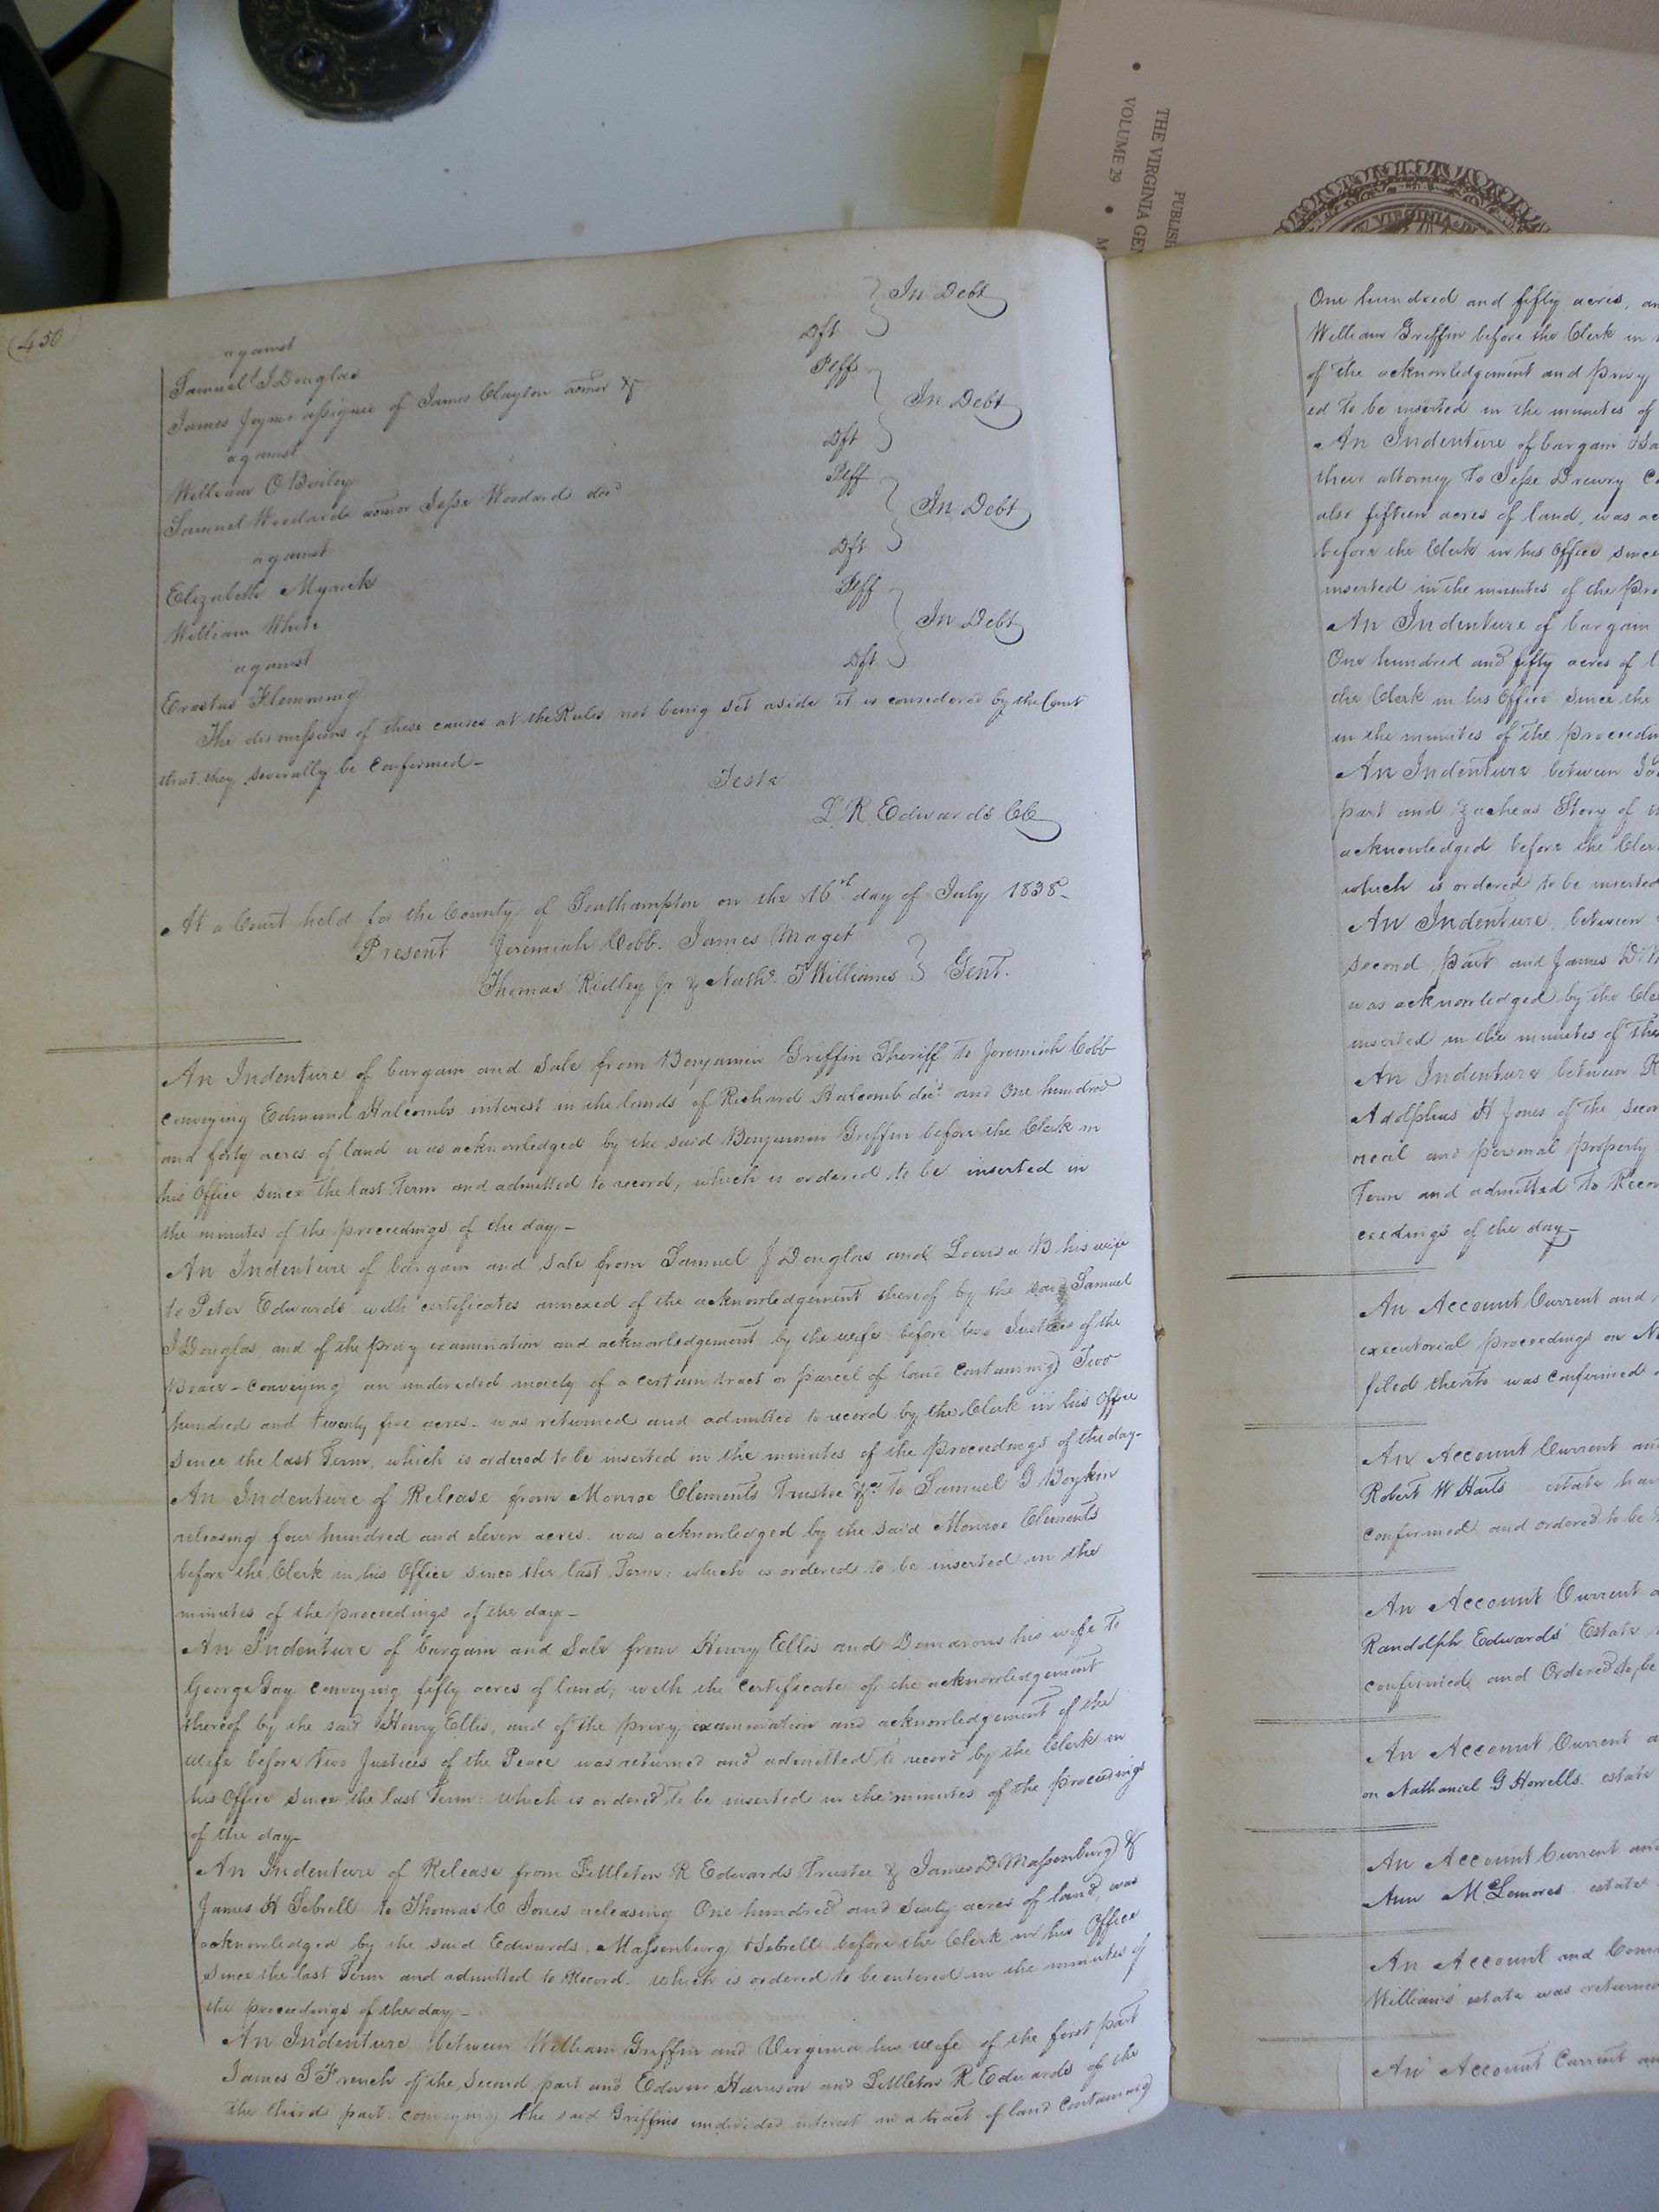 THE VIRGINIA GEN
VOLUME 29 • M
PUBLISH
VIRGINIA
(450
against
In Debt
Samuel J Douglas Dft
James Joyner assignee of James Clayton admor &c Plff
against
In Debt
William O Bailey Dft
Samuel Woodards admor Jesse Woodard decd Plff
against
In Debt
Elizabeth Myrick Dft
William White Plff
against
In Debt
Erastus Flemming Dft
The dismissions of these causes at the Rules not being set aside it is considered by the Court
that they severally be confirmed -
Teste
L. R. Edwards CC
At a Court held for the County of Southampton on the 16th day of July 1838 -
Present Jeremiah Cobb. James Maget
Thomas Ridley Jr & Nathl. T Williams } Gent.
An Indenture of bargain and Sale from Benjamin Griffin Sheriff to Jeremiah Cobb
conveying Edmund Halcombs interest in the lands of Richard Halcomb decd. and One hundred
and forty acres of land was acknowledged by the said Benjamin Griffin before the Clerk in
his Office since the last Term and admitted to record, which is ordered to be inserted in
the minutes of the proceedings of the day -
An Indenture of bargain and Sale from Samuel J Douglas and Louisa B his wife
to Peter Edwards with certificates annexed of the acknowledgement thereof by the said Samuel
J Douglas, and of the privy examination and acknowledgement by the wife before two Justices of the
Peace - Conveying an undivided moiety of a certain tract or parcel of land containing Two
hundred and twenty five acres - was returned and admitted to record by the Clerk in his Office
Since the last Term, which is ordered to be inserted in the minutes of the proceedings of the day -
An Indenture of Release from Monroe Clements Trustee &c. to Samuel G Boykin
releasing four hundred and eleven acres. was acknowledged by the said Monroe Clements
before the Clerk in his Office since the last Term: which is ordered to be inserted in the
minutes of the proceedings of the day -
An Indenture of bargain and Sale from Henry Ellis and Damarous his wife to
George Gay conveying fifty acres of land, with the certificate of the acknowledgement
thereof by the said Henry Ellis, and of the privy examination and acknowledgement of the
wife before two Justices of the Peace was returned and admitted to record by the Clerk in
his Office Since the last Term: which is ordered to be inserted in the minutes of the proceedings
of the day -
An Indenture of Release from Littleton R Edwards Trustee & James D Massenburg &
James H Sebrell to Thomas C Jones releasing One hundred and Sixty acres of land, was
acknowledged by the said Edwards, Massenburg & Sebrell before the Clerk in his Office
Since the last Term and admitted to Record. which is ordered to be entered in the minutes of
the proceedings of the day -
An Indenture between William Griffin and Virginia his wife of the first part
James S French of the second part and Edwin Harrison and Littleton R Edwards of the
the third part conveying the said Griffins undivided interest in a tract of land containing
One hundred and fifty acres, an
William Griffin before the Clerk in
of the acknowledgement and privy
ed to be inserted in the minutes of
An Indenture of bargain & Sa
their attorney to Jesse Drewry
also fifteen acres of land, was ac
before the Clerk in his Office since
inserted in the minutes of the pro
An Indenture of bargain
One hundred and fifty acres of l
the Clerk in his Office Since the
in the minutes of the proceedin
An Indenture between
part and Zacheas Story of
acknowledged before the Cler
which is ordered to be inserted
An Indenture, between
second part and James D M
was acknowledged by the Cle
inserted in the minutes of the
An Indenture between R
Adolphus H Jones of the secon
real and personal property
Term and admitted to Recor
ceedings of the day -
An Account Current and
executorial proceedings on N
filed thereto was confirmed
An Account Current an
Robert W Harts estate hav
confirmed and ordered to be
An Account Current a
Randolph Edwards' Estate
confirmed, and Ordered to be
An Account Current a
on Nathaniel G Howells. estate
An Account Current and
Ann McLemores. estate
An Account and Com
Williams' estate was returned
An Account Current an